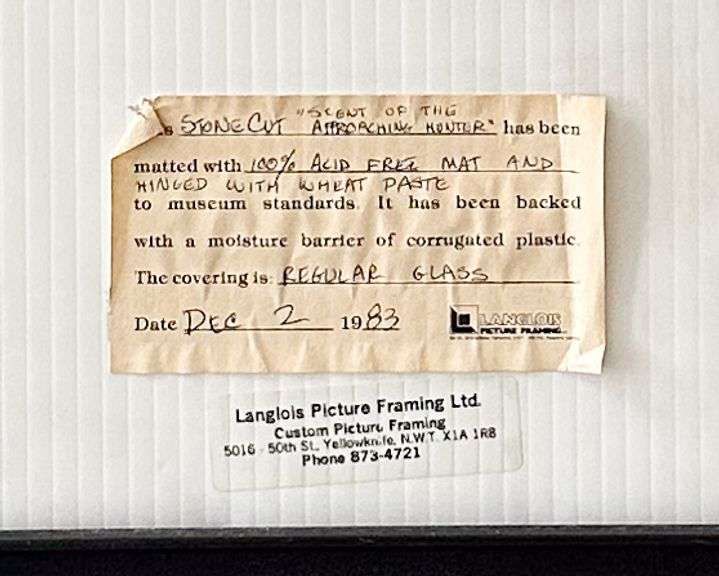 "SCENT OF THE
s STONECUT APPROACHING HUNTER" has been
matted with 100% ACID FREE MAT AND
HINGED WITH WHEAT PASTE
to museum standards. It has been backed
with a moisture barrier of corrugated plastic.
The covering is: REGULAR GLASS
Date DEC 2 1983
LANGLOIS
PICTURE FRAMING
Langlois Picture Framing Ltd.
Custom Picture Framing
5016 - 50th St., Yellowknife, N.W.T. X1A 1R8
Phone 873-4721